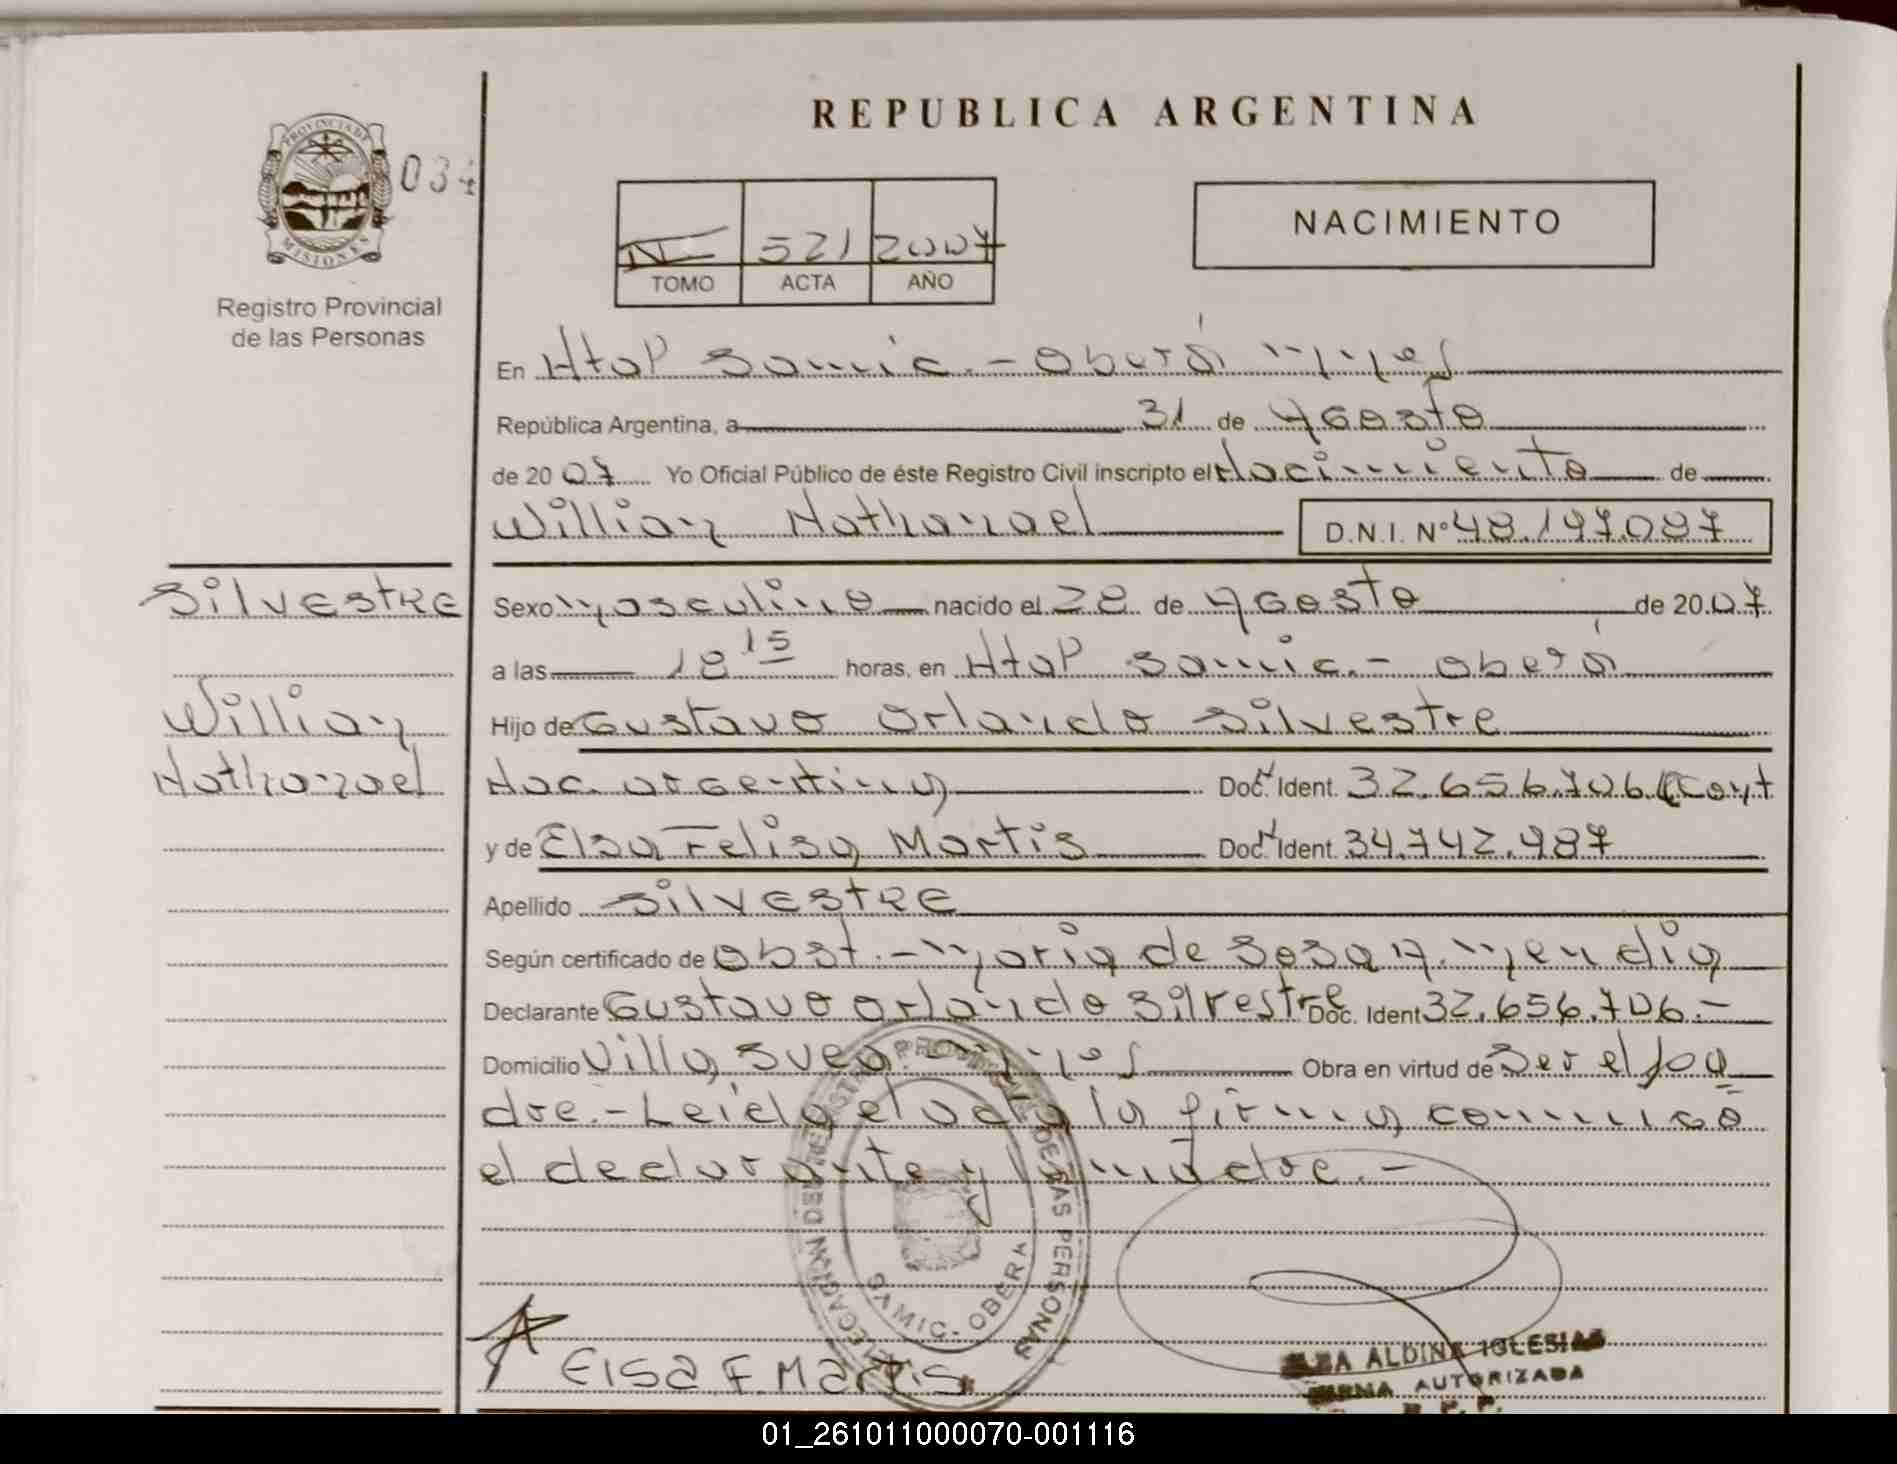 REPUBLICA ARGENTINA
PROVINCIA DE
MISIONES
034
Registro Provincial
de las Personas
521 2007
TOMO ACTA AÑO
NACIMIENTO
En Htal Samic.- Oberá Mnes
República Argentina, a 31 de Agosto
de 2007 Yo Oficial Público de éste Registro Civil inscripto el Nacimiento de
Willian Nathanael D.N.I. Nº 48.197.087
Silvestre
Willian
Nathanael
Sexo Masculino nacido el 28 de Agosto de 2007
a las 18 15 horas, en Htal Samic.- Oberá
Hijo de Gustavo Orlando Silvestre
Nac. argentina Doc. Ident. 32.656.706
y de Elsa Felisa Martis Doc. Ident. 34.742.987
Apellido Silvestre
Según certificado de Obst.- Maria de Sosa Mendia
Declarante Gustavo Orlando Silvestre Doc. Ident 32.656.706.-
Domicilio Villa Svea.- Mnes Obra en virtud de Ser el pa
dre.- Leída el acta la firma conmigo
el declarante y la madre.-
DELEGACION DEL REGISTRO PROVINCIAL DE LAS PERSONAS
SAMIC - OBERA
Elsa F. Martis
ALDINA IGLESIAS
FIRMA AUTORIZADA
R. P. P.
01_261011000070-001116